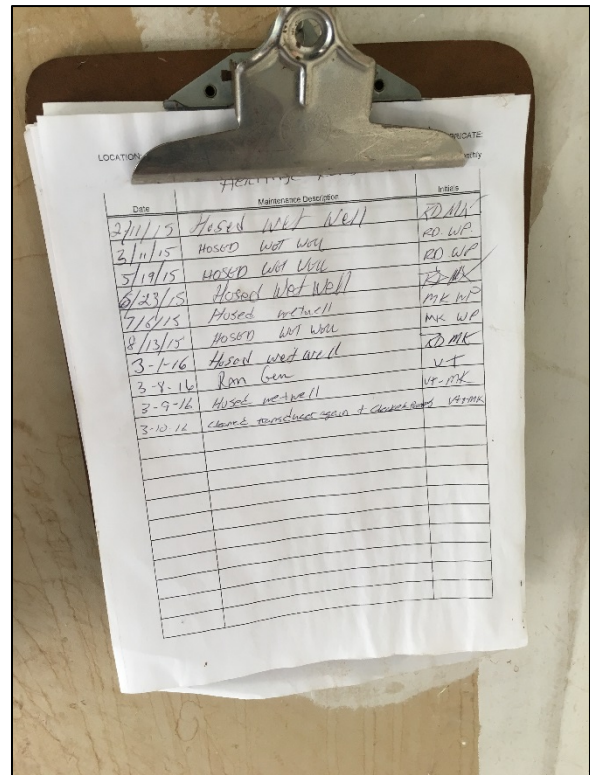 LOCATION
Date Maintenance Description Initials
2/11/15 Hosed Wet Well RD MK
3/11/15 HOSED WET WELL RD WP
5/19/15 HOSED WET WELL RD WP
6/23/15 Hosed Wet Well RD MK
7/6/15 Hosed wetwell MK WP
8/13/15 HOSED WET WELL MK WP
3-1-16 Hosed wet well RD MK
3-8-16 Ran Gen VT
3-9-16 Hosed wetwell VT-MK
3-10-16 Cleaned transducer again + Cleaned VT+MK